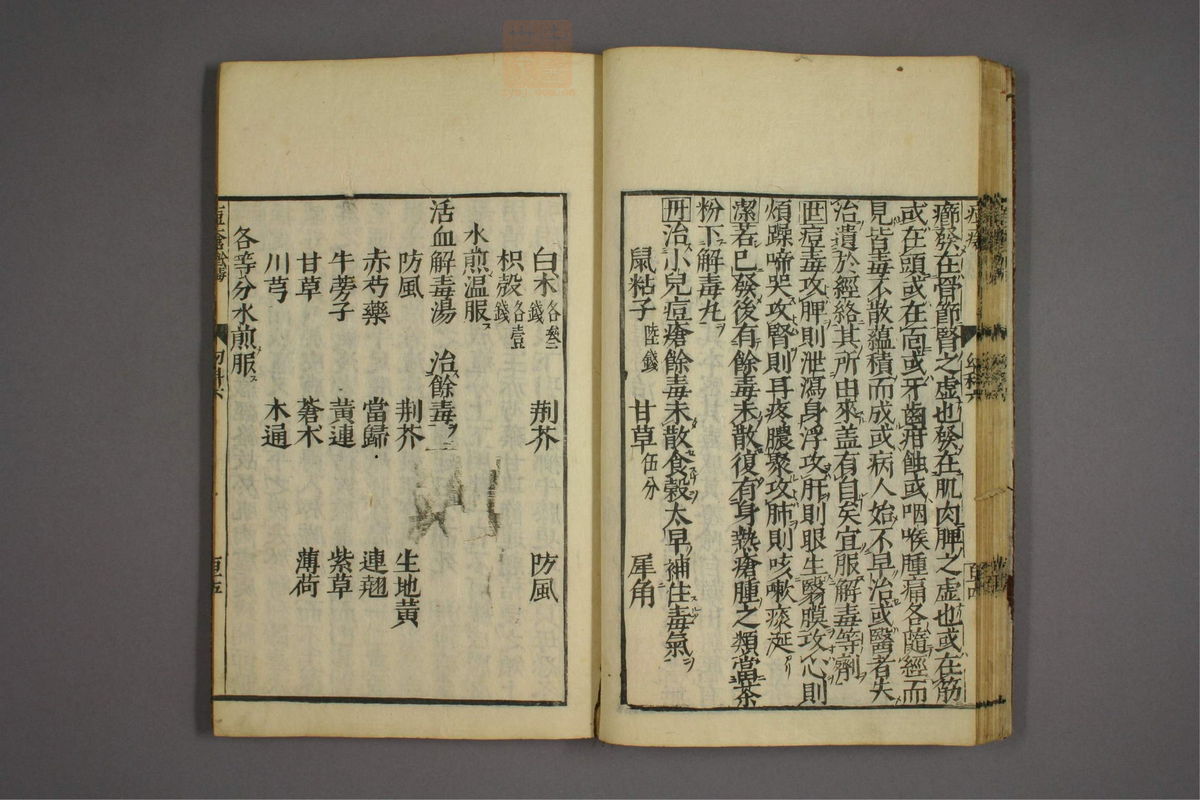 癤發在骨節腎之虚也發在肌肉脾之虚也或在筋
或在頭或在面或牙齒疳蝕或咽喉腫痛各隨經而
見皆毒不散蘊積而成或病人始不早治或醫者失
治遺於經絡其所由來盖有自矣宜服解毒等劑
世痘毒攻脾則泄瀉身浮攻肝則眼生翳膜攻心則
煩躁啼哭攻腎則耳疼膿聚攻肺則咳嗽痰涎
潔若已發後有餘毒未散復有身熱瘡腫之類當茶
粉下解毒丸
丹治小兒痘瘡餘毒未散食穀太早補住毒氣
鼠粘子陸錢 甘草伍分 犀角
白术各叁錢 荆芥 防風
枳殼各壹錢
水煎温服
活血解毒湯 治餘毒
防風 荆芥 生地黄
赤芍藥 當歸 連翹
牛蒡子 黄連 紫草
甘草 蒼术 薄荷
川芎 木通
各等分水煎服